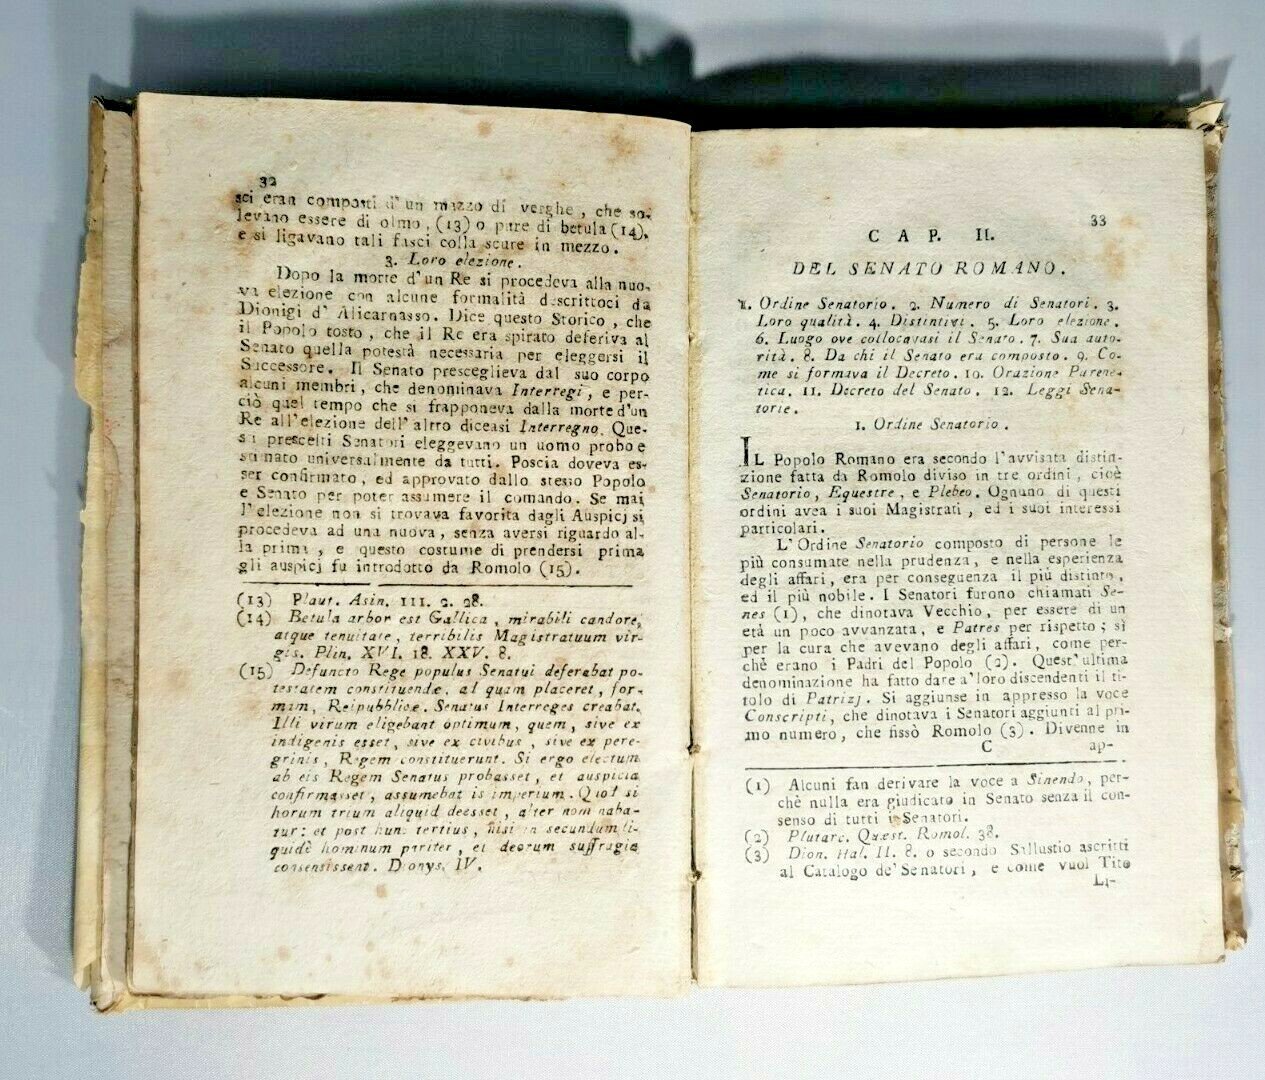 32
sci eran composti d'un mazzo di verghe, che so-
levano essere di olmo, (13) o pure di betula (14),
e si ligavano tali fasci colla scure in mezzo.
3. Loro elezione.
Dopo la morte d'un Re si procedeva alla nuo-
va elezione con alcune formalità descrittoci da
Dionigi d' Alicarnasso. Dice questo Storico, che
il Popolo tosto, che il Re era spirato deferiva al
Senato quella potestà necessaria per eleggersi il
Successore. Il Senato presceglieva dal suo corpo
alcuni membri, che denominava Interregi, e per-
ciò quel tempo che si frapponeva dalla morte d'un
Re all'elezione dell'altro diceasi Interregno. Que-
si prescelti Senatori eleggevano un uomo probo e
stinato universalmente da tutti. Poscia doveva es-
ser confirmato, ed approvato dallo stesso Popolo
e Senato per poter assumere il comando. Se mai
l'elezione non si trovava favorita dagli Auspicj si
procedeva ad una nuova, senza aversi riguardo al-
la prima, e questo costume di prendersi prima
gli auspicj fu introdotto da Romolo (15).
(13) Plaut. Asin. III. 2. 28.
(14) Betula arbor est Gallica, mirabili candore,
atque tenuitate, terribilis Magistratuum vir-
gis. Plin. XVI. 18. XXV. 8.
(15) Defuncto Rege populus Senatui deferebat po-
testatem constituendæ, al quam placeret, for-
mam, Reipubblicæ. Senatus Interreges creabat.
Illi virum eligebant optimum, quem, sive ex
indigenis esset, sive ex civibus, sive ex pere-
grinis, Regem constituerunt. Si ergo electum
ab eis Regem Senatus probasset, et auspicia
confirmasset, assumebat is imperium. Quod si
horum trium aliquid deesset, alter nominaba-
tur: et post hunc tertius, nisi in secundum li-
quidè hominum pariter, et deorum suffragia
consensissent. Dionys. IV.
33
CAP. II.
DEL SENATO ROMANO.
1. Ordine Senatorio. 2. Numero di Senatori. 3.
Loro qualità. 4. Distintivi. 5. Loro elezione.
6. Luogo ove collocavasi il Senato. 7. Sua auto-
rità. 8. Da chi il Senato era composto. 9. Co-
me si formava il Decreto. 10. Orazione Parene-
tica. 11. Decreto del Senato. 12. Leggi Sena-
torie.
1. Ordine Senatorio.
IL Popolo Romano era secondo l'avvisata distin-
zione fatta da Romolo diviso in tre ordini, cioè
Senatorio, Equestre, e Plebeo. Ognuno di questi
ordini avea i suoi Magistrati, ed i suoi interessi
particolari.
L'Ordine Senatorio composto di persone le
più consumate nella prudenza, e nella esperienza
degli affari, era per conseguenza il più distinto,
ed il più nobile. I Senatori furono chiamati Se-
nes (1), che dinotava Vecchio, per essere di un
età un poco avvanzata, e Patres per rispetto; sì
per la cura che avevano degli affari, come per-
chè erano i Padri del Popolo (2). Quest'ultima
denominazione ha fatto dare a'loro discendenti il ti-
tolo di Patrizj. Si aggiunse in appresso la voce
Conscripti, che dinotava i Senatori aggiunti al pri-
mo numero, che fissò Romolo (3). Divenne in
C ap-
(1) Alcuni fan derivare la voce a Sinendo, per-
chè nulla era giudicato in Senato senza il con-
senso di tutti i Senatori.
(2) Plutarc. Quæst. Romol. 38.
(3) Dion. Hal. II. 8. o secondo Sallustio ascritti
al Catalogo de' Senatori, e come vuol Tito
Li-